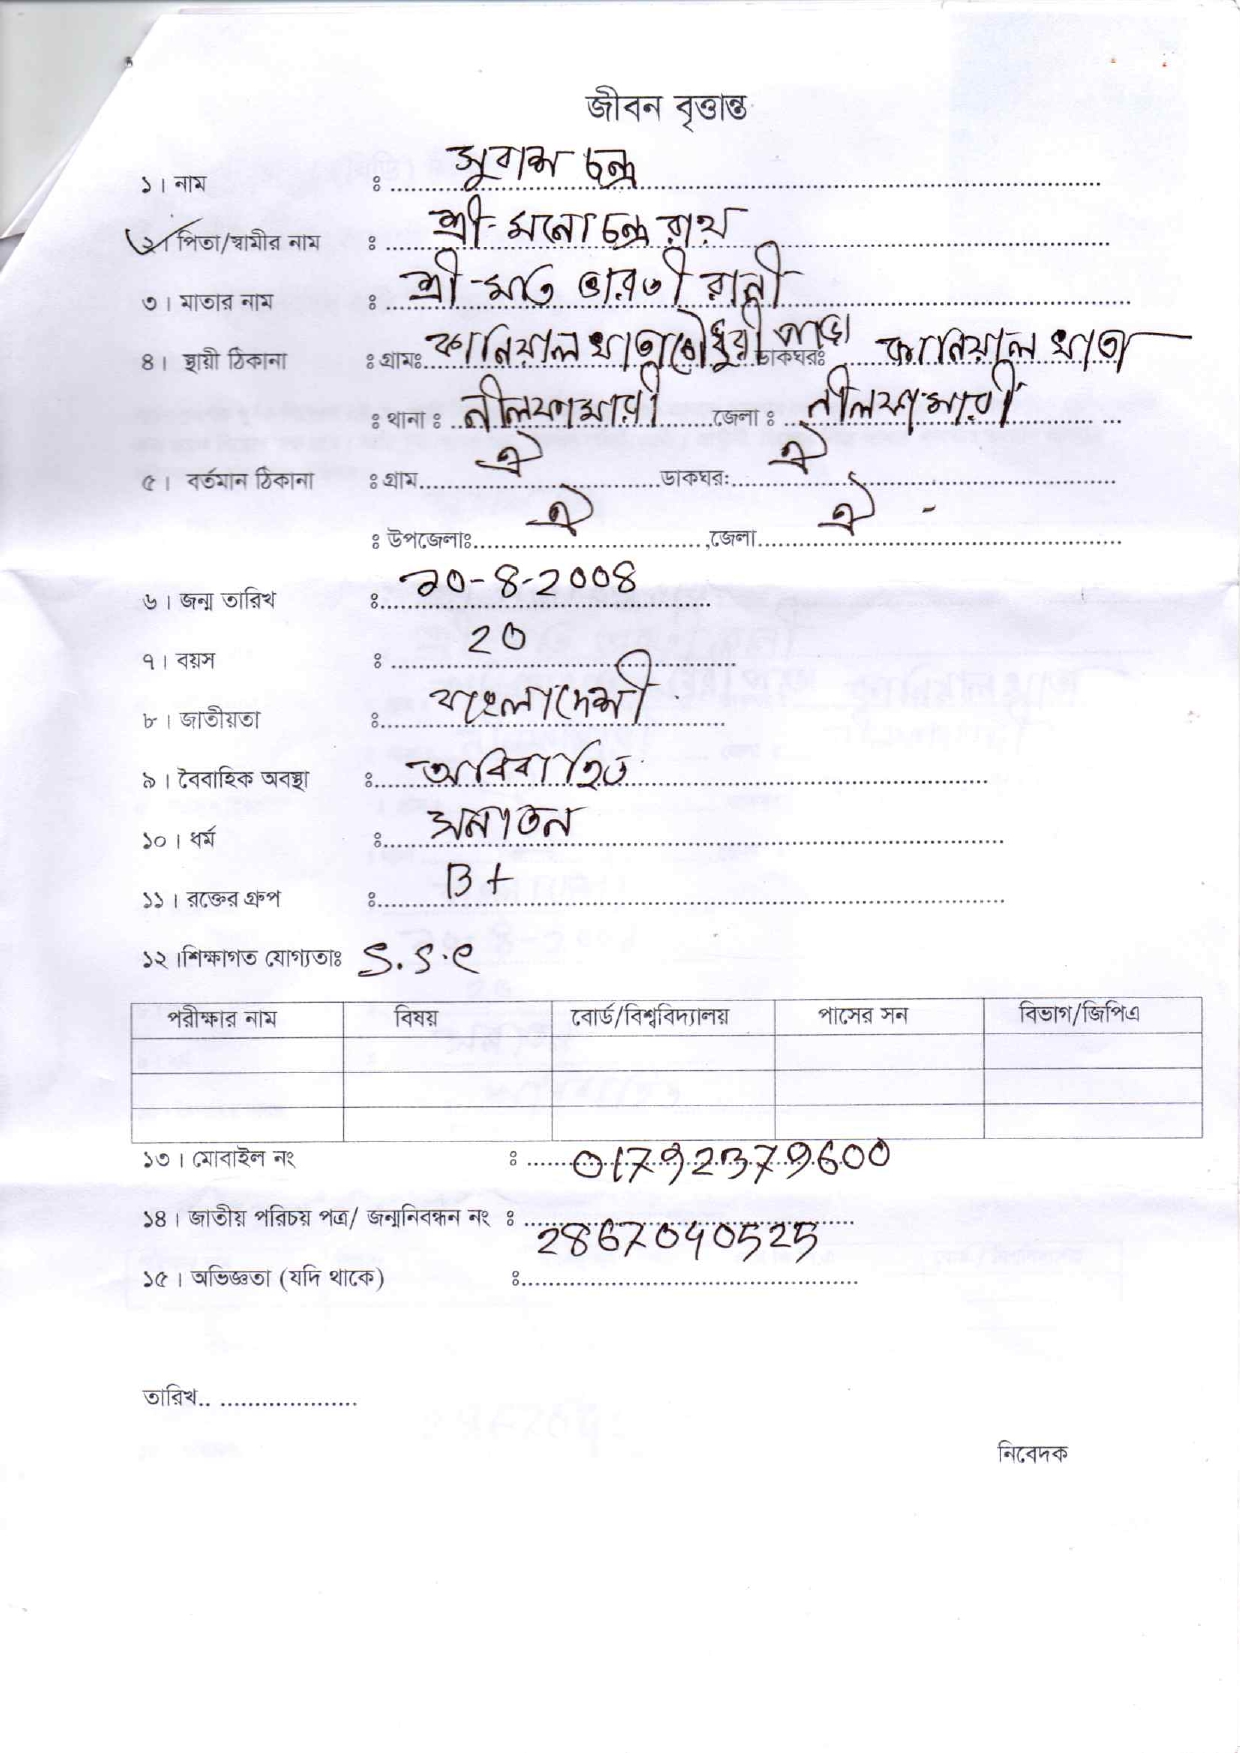 জীবন বৃত্তান্ত
১। নাম : সুবাস চন্দ্র
২। পিতা/স্বামীর নাম : শ্রী-মনো চন্দ্র রায়
৩। মাতার নাম : শ্রী-মতি ভারতী রানী
৪। স্থায়ী ঠিকানা : গ্রামঃ কানিয়াল খাতা চৌধুরী পাড়া ডাকঘরঃ কানিয়াল খাতা
: থানা : নীলফামারী জেলা : নীলফামারী
৫। বর্তমান ঠিকানা : গ্রাম ঐ ডাকঘর: ঐ
: উপজেলাঃ ঐ ,জেলা ঐ
৬। জন্ম তারিখ : 20-8-2008
৭। বয়স : 20
৮। জাতীয়তা : বাংলাদেশী
৯। বৈবাহিক অবস্থা : অবিবাহিত
১০। ধর্ম : সনাতন
১১। রক্তের গ্রুপ : B+
১২।শিক্ষাগত যোগ্যতাঃ S.S.C
পরীক্ষার নাম বিষয় বোর্ড/বিশ্ববিদ্যালয় পাসের সন বিভাগ/জিপিএ
১৩। মোবাইল নং : 01792379600
১৪। জাতীয় পরিচয় পত্র/ জন্মনিবন্ধন নং : 2867040525
১৫। অভিজ্ঞতা (যদি থাকে) :
তারিখ..
নিবেদক